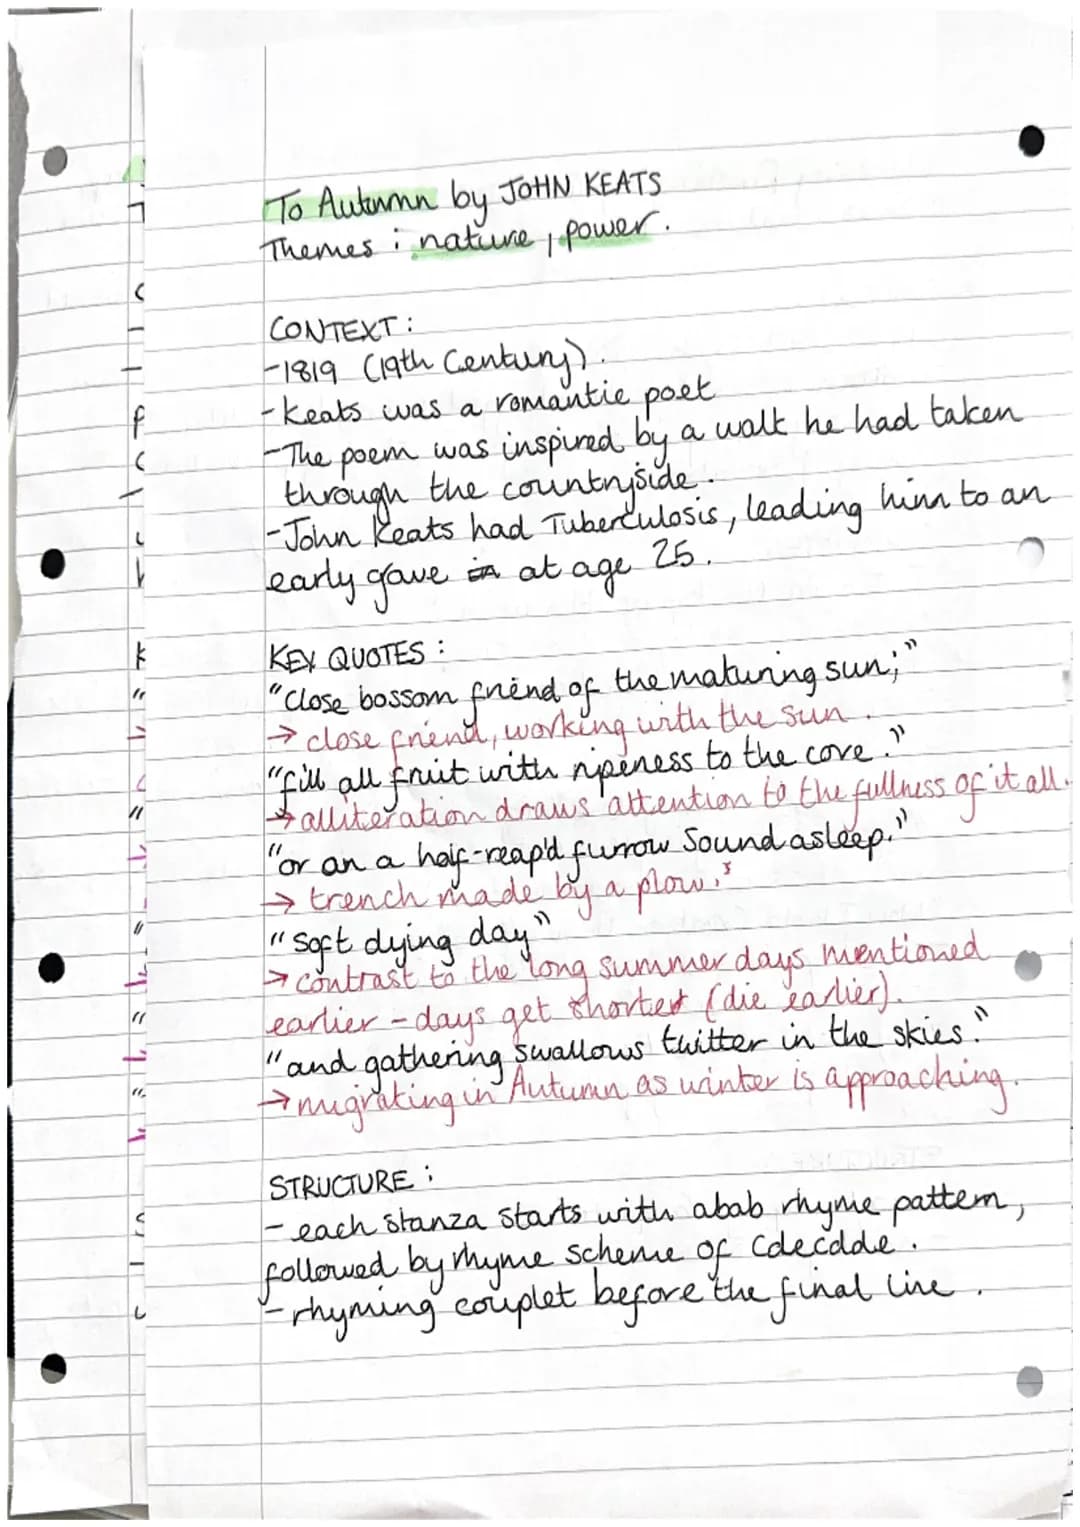 To Autumn by JOHN KEATS
Themes : nature, power.
CONTEXT :
-1819 (19th Century).
-Keats was a romantic poet
-The poem was inspired by a walk he had taken
through the countryside.
-John Keats had Tuberculosis, leading him to an
early grave at age 25.
KEY QUOTES :
"Close bossom friend of the maturing sun;"
→ close friend, working with the sun.
"fill all fruit with ripeness to the core."
→ alliteration draws attention to the fullness of it all.
"or an a half-reap'd furrow Sound asleep."
→ trench made by a plow.
"soft dying day"
→ contrast to the long summer days mentioned
earlier - days get shorter (die earlier).
"and gathering swallows twitter in the skies."
→ migrating in Autumn as winter is approaching.
STRUCTURE :
- each stanza starts with abab rhyme pattern,
followed by rhyme scheme of cdecdde.
- rhyming couplet before the final line.